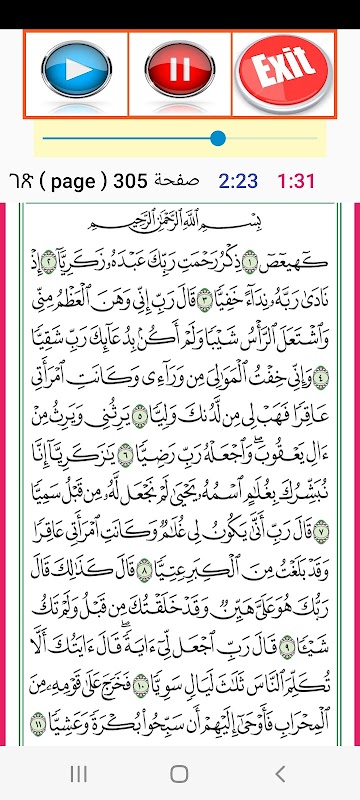 Exit
ገጽ ( page ) 305 صفحة 2:23 1:31
بِسْمِ ٱللَّهِ ٱلرَّحْمَٰنِ ٱلرَّحِيمِ
كٓهيعٓصٓ ١ ذِكْرُ رَحْمَتِ رَبِّكَ عَبْدَهُۥ زَكَرِيَّآ ٢ إِذْ
نَادَىٰ رَبَّهُۥ نِدَآءً خَفِيًّا ٣ قَالَ رَبِّ إِنِّى وَهَنَ ٱلْعَظْمُ مِنِّى
وَٱشْتَعَلَ ٱلرَّأْسُ شَيْبًا وَلَمْ أَكُنۢ بِدُعَآئِكَ رَبِّ شَقِيًّا
٤ وَإِنِّى خِفْتُ ٱلْمَوَٰلِىَ مِن وَرَآءِى وَكَانَتِ ٱمْرَأَتِى
عَاقِرًا فَهَبْ لِى مِن لَّدُنكَ وَلِيًّا ٥ يَرِثُنِى وَيَرِثُ مِنْ
ءَالِ يَعْقُوبَ ۖ وَٱجْعَلْهُ رَبِّ رَضِيًّا ٦ يَٰزَكَرِيَّآ إِنَّا
نُبَشِّرُكَ بِغُلَٰمٍ ٱسْمُهُۥ يَحْيَىٰ لَمْ نَجْعَل لَّهُۥ مِن قَبْلُ سَمِيًّا
٧ قَالَ رَبِّ أَنَّىٰ يَكُونُ لِى غُلَٰمٌ وَكَانَتِ ٱمْرَأَتِى عَاقِرًا
وَقَدْ بَلَغْتُ مِنَ ٱلْكِبَرِ عِتِيًّا ٨ قَالَ كَذَٰلِكَ قَالَ
رَبُّكَ هُوَ عَلَىَّ هَيِّنٌ وَقَدْ خَلَقْتُكَ مِن قَبْلُ وَلَمْ تَكُ
شَيْـًٔا ٩ قَالَ رَبِّ ٱجْعَل لِّىٓ ءَايَةً ۚ قَالَ ءَايَتُكَ أَلَّا
تُكَلِّمَ ٱلنَّاسَ ثَلَٰثَ لَيَالٍ سَوِيًّا ١٠ فَخَرَجَ عَلَىٰ قَوْمِهِۦ مِنَ
ٱلْمِحْرَابِ فَأَوْحَىٰٓ إِلَيْهِمْ أَن سَبِّحُوا۟ بُكْرَةً وَعَشِيًّا ١١